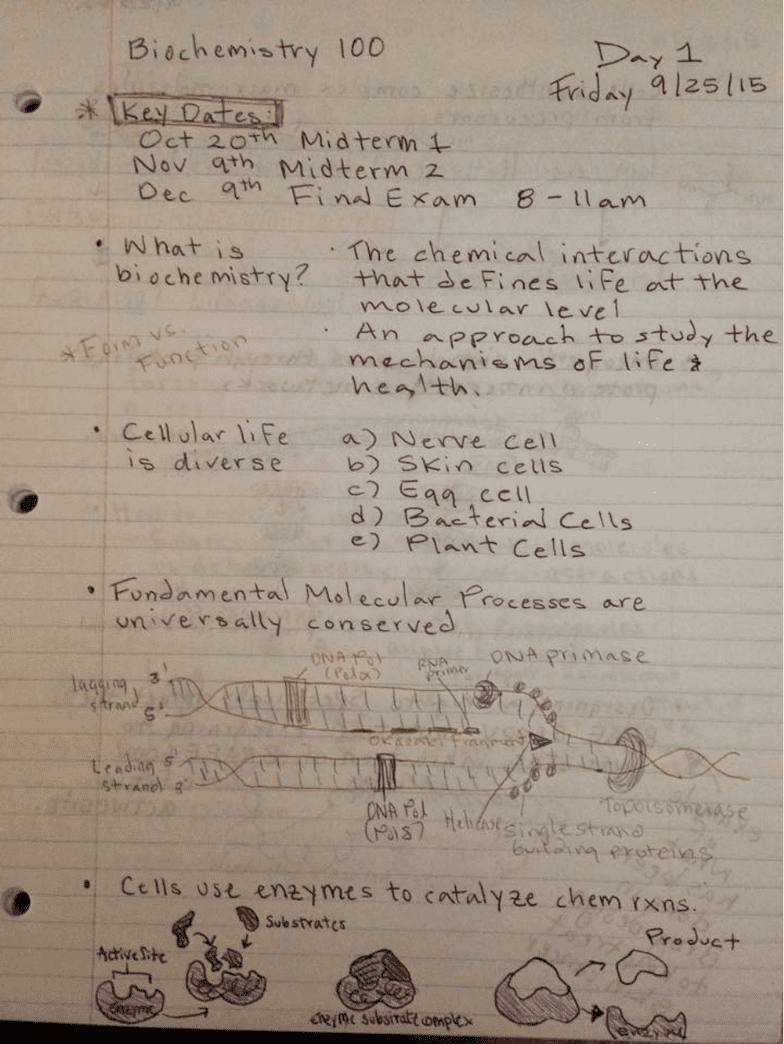 Biochemistry 100
Day 1
Friday 9/25/15
* Key Dates:
Oct 20th Midterm 1
Nov 9th Midterm 2
Dec 9th Final Exam 8-11am
• What is
biochemistry?
• The chemical interactions
that defines life at the
molecular level
• An approach to study the
mechanisms of life &
health.
* Form vs.
Function
• Cellular life
is diverse
a) Nerve cell
b) Skin cells
c) Egg cell
d) Bacterial Cells
e) Plant Cells
• Fundamental Molecular Processes are
universally conserved
DNA Pol
(Polα)
RNA
primer
DNA primase
lagging
strand
3'
5'
Okazaki fragment
Leading
strand
5'
3'
DNA Pol
(Polδ)
Helicase
single strand
building proteins
Topoisomerase
• Cells use enzymes to catalyze chem rxns.
Substrates
Active Site
enzyme
enzyme substrate complex
Product
enzyme